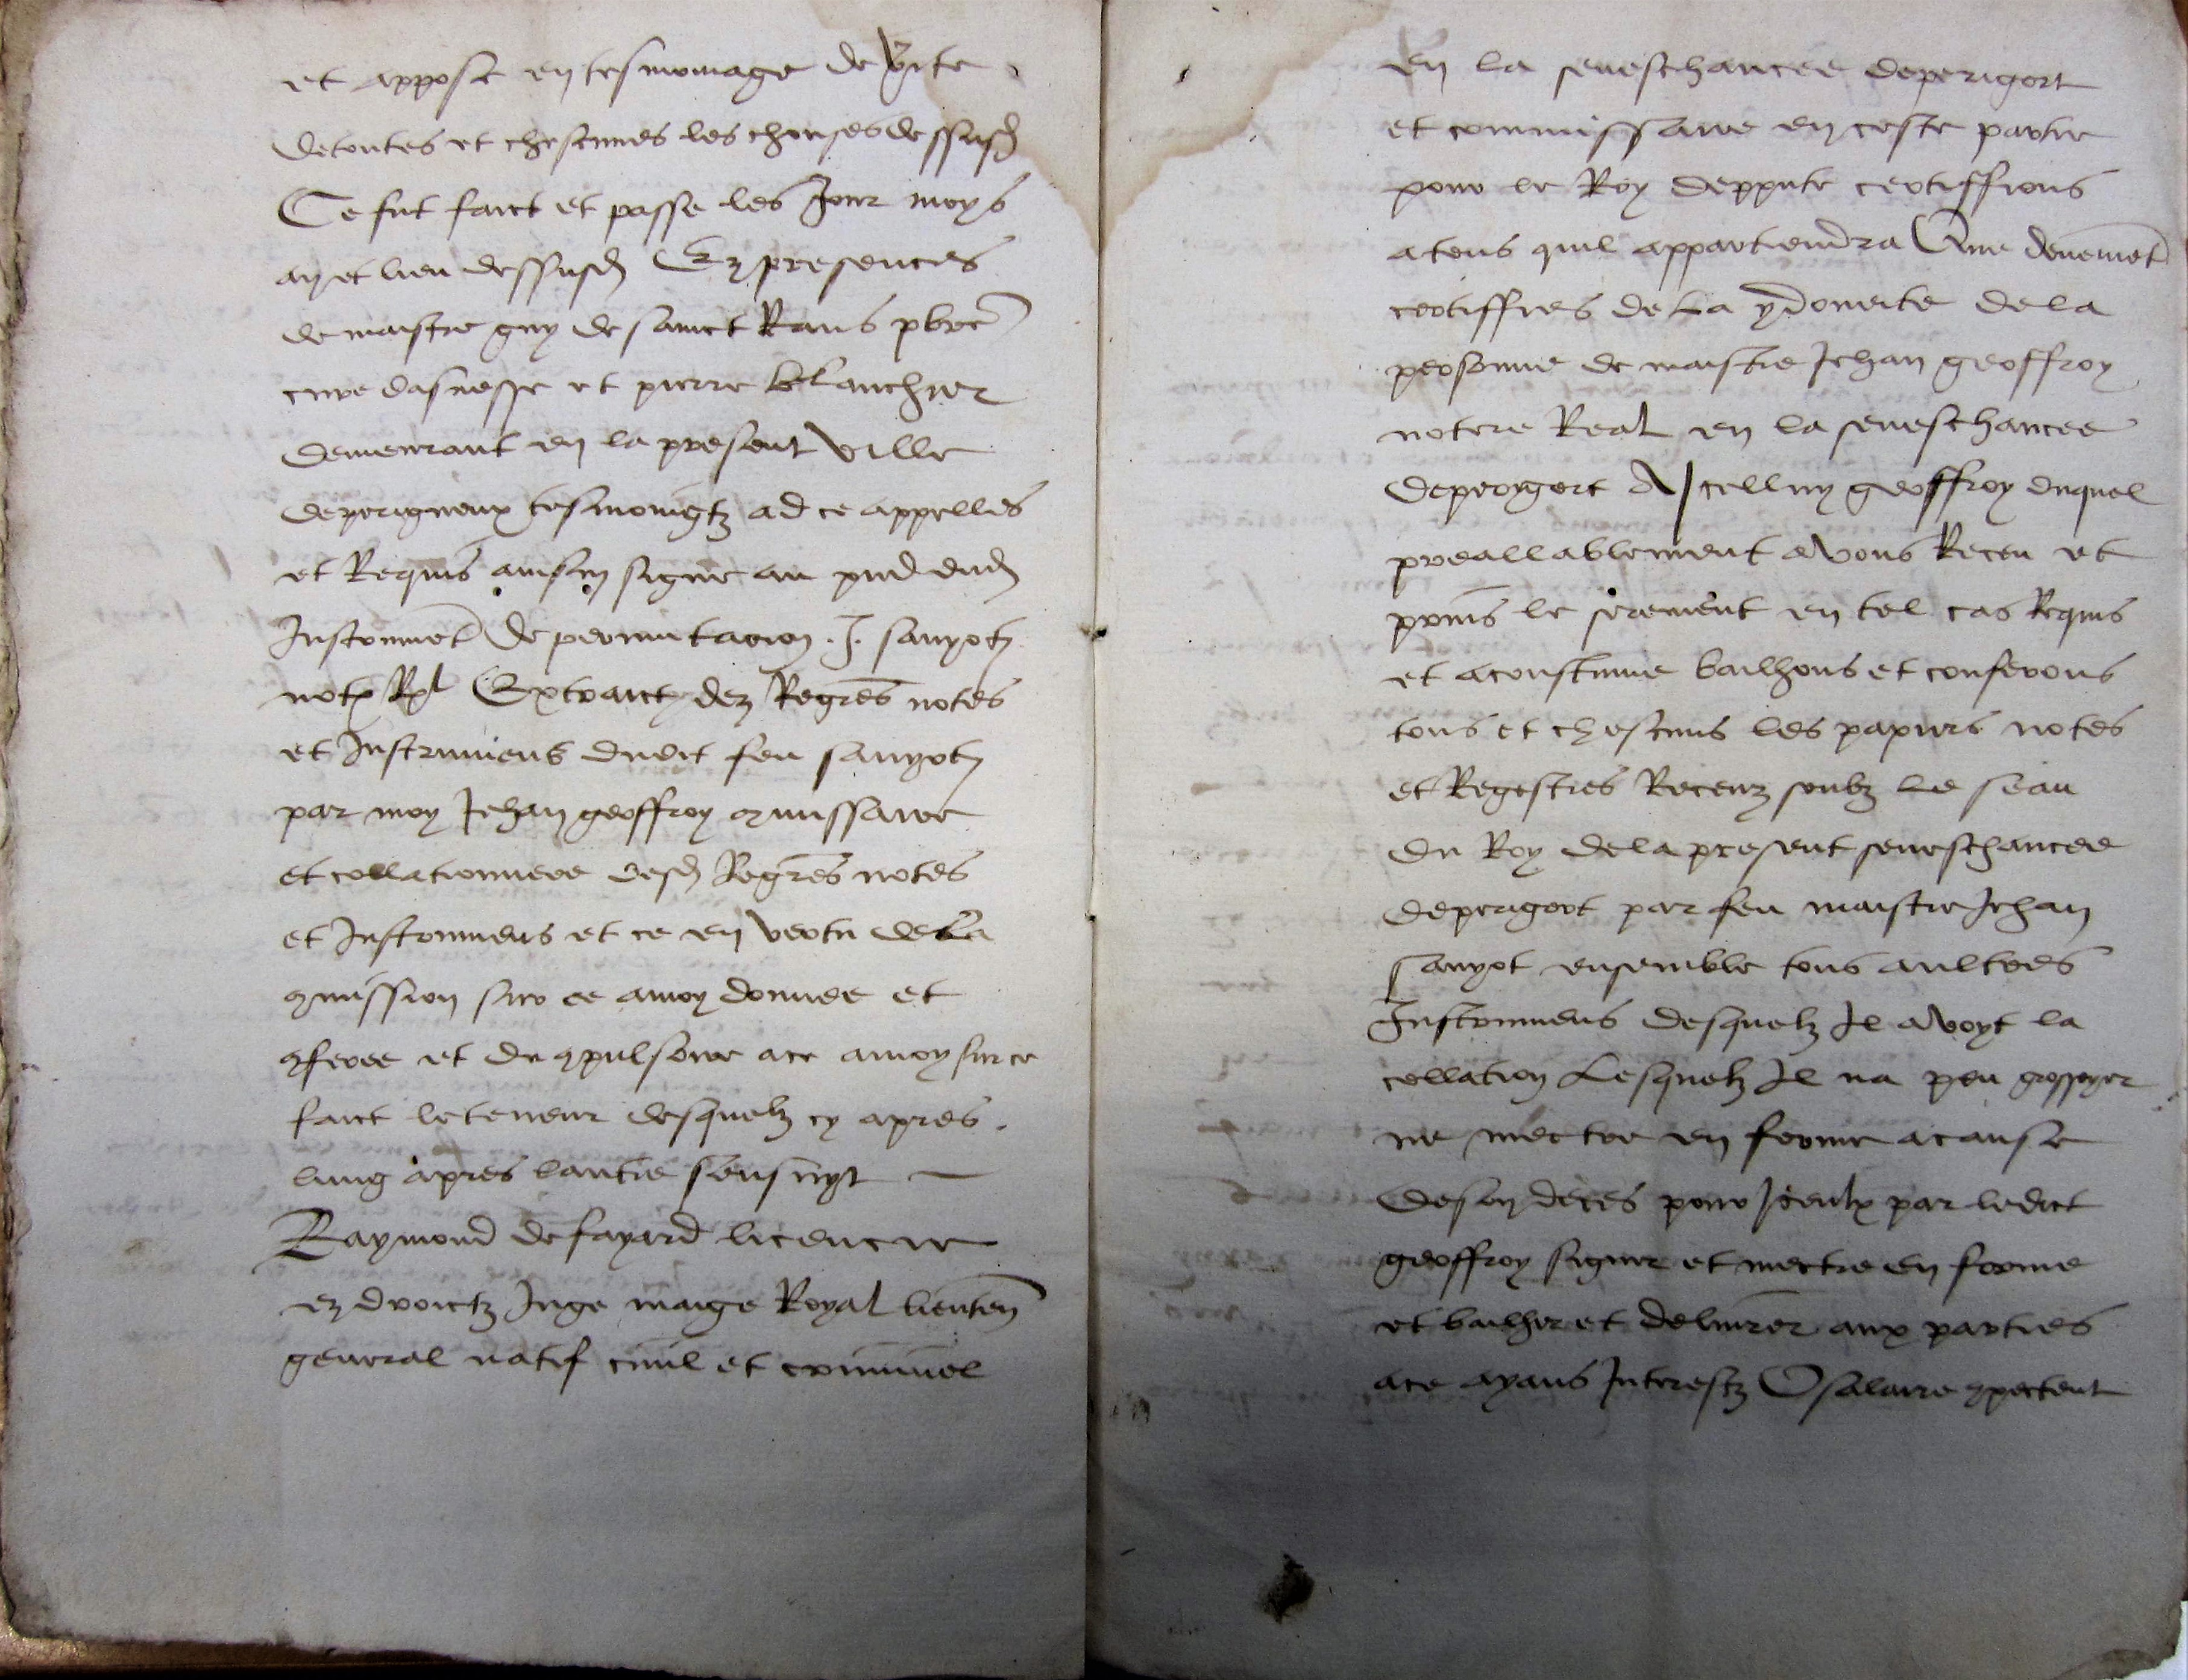 et appose en tesmoniage de v̄ite
de toutes et chescunes les chouses dessusd
Ce fut faict et passe les Jour moys
an et lieu dessusd En presences
de maistre guy de sainct Rans pbrē
cure dasnesse et pierre blanchier
demeurant en la present ville
de perigueux tesmoingtz ad ce appelles
et Requis ainsin signe au pnd dud
Instrumēt de permutacion . J. sanyot
notr Rl Extraict dez Regrēs notes
et Instrumens dudit feu sanyot
par moy Jehan geoffroy 9missaire
et collationnere desd Regrēs notes
et Instrumens et ce en vertu de la
9mission sur ce a moy donnee et
9feree et de 9pulsoire ace a moy sur ce
faict le teneur desquelz cy apres
lung apres lautre sensuyt
Raymond de fayard licencie
ez droictz Juge maige Royal lieuten̄
general natif civil et criminel
en la seneschancee de perigort
et commissaire en ceste partie
pour le Roy deppute certiffions
a tous quil appartiendra Que deuemēt
certiffies de la ydoneite de la
personne de maistre Jehan geoffroy
notere Real en la seneschancee
de perygort A Icelluy geoffroy duquel
preallablement avons Receu et
prins le serement en tel cas Requis
et acoustume bailhons et conferons
tous et chescuns les papiers notes
et Regestres Receuz soubz le seau
du Roy de la present seneschancee
de perigort par feu maistre Jehan
sanyot ensemble tous aultres
Instrumens desquelz Il avoyt la
collation Lesquelz Il na peu grossoyer
ne mectre en forme a cause
de son deces pour Iceulx par ledict
geoffroy signer et mectre en forme
et bailher et delivrer aux parties
ace ayans Interestz O salaire 9pectent